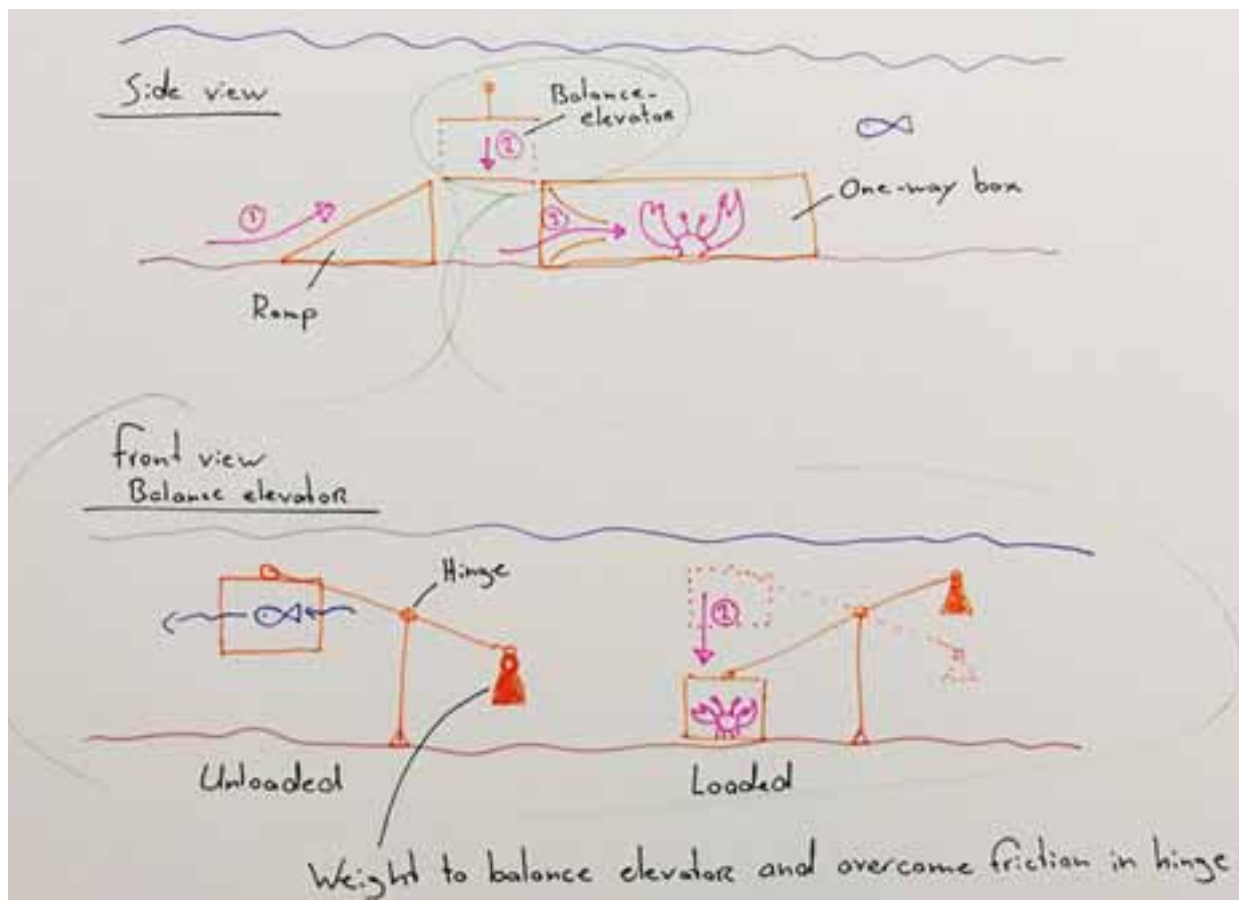 Side view
Balance-
elevator
②
①
③
One-way box
Ramp
Front view
Balance elevator
Hinge
②
Unloaded
Loaded
Weight to balance elevator and overcome friction in hinge